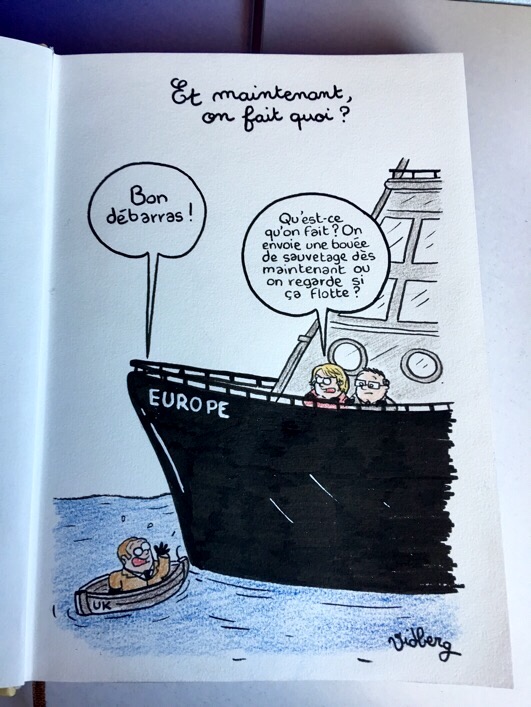 Et maintenant,
on fait quoi ?
Bon
débarras !
Qu'est-ce
qu'on fait ? On
envoie une bouée
de sauvetage dès
maintenant ou
on regarde si
ça flotte ?
EUROPE
UK
Vidberg